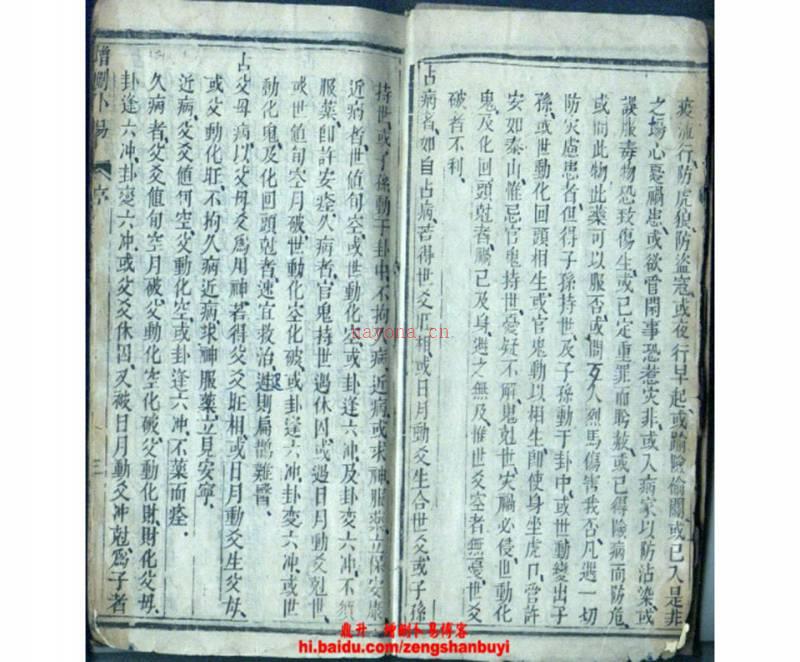 疫流行、防虎狼、防盜寇、或夜行早起、或踰險偷關、或已入是非
之塲、心憂禍患、或欲管閑事、恐惹災非、或入病家、以防沾染、或
誤服毒物、恐致傷生、或已定重罪而盻赦、或已得險病而防危、
或問此物此藥可以服否、或問人烈馬傷害我否、凡遇一切
防災慮患者、但得子孫持世、及子孫動于卦中、或世動變出子
孫、或世動化回頭相生、或官鬼動以相生、卽使身坐虎口、管許
安如泰山、惟忌官鬼持世、憂疑不解、鬼尅世、災禍必侵、世動化
鬼、及化回頭尅者、禍已及身、避之無及、惟世爻空者、無憂、世爻
破者不利、
占病者、如自占病、若得世爻旺相、或日月動爻生合世爻、或子孫
持世、或子孫動于卦中、不拘久病近病、或求神服藥、立保安康、
近病者、世值旬空、或世動化空、或卦逢六冲、及卦變六冲、不須
服藥、卽許安痊、久病者、官鬼持世、遇休囚、或遇日月動爻尅世、
或世值旬空月破、世動化空化破、或卦逢六冲、卦變六冲、或世
動化鬼、及化回頭尅者、速宜救治、遲則扁鵲難醫、
占父母病、以父母爻爲用神、若得父爻旺相、或日月動爻生父母、
或父動化旺、不拘久病近病、求神服藥、立見安寧、
近病、父爻值旬空、父動化空、或卦逢六冲、不藥而痊、
久病者、父爻值旬空月破、父動化空化破、父動化財、財化父母、
卦逢六冲、卦變六冲、或父爻休囚、又被日月動爻冲尅、爲子者
增刪卜易
序
三
nayona.cn
鼎升 增刪卜易博客
hi.baidu.com/zengshanbuyi